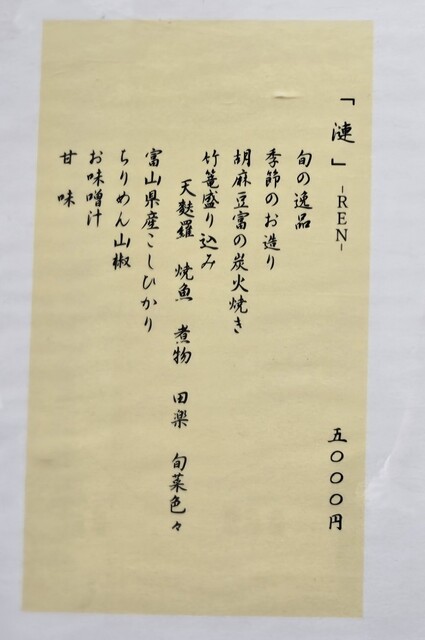 「漣」-REN- 五〇〇〇円
旬の逸品
季節のお造り
胡麻豆富の炭火焼き
竹篭盛り込み
天麩羅 焼魚 煮物 田楽 旬菜色々
富山県産こしひかり
ちりめん山椒
お味噌汁
甘味